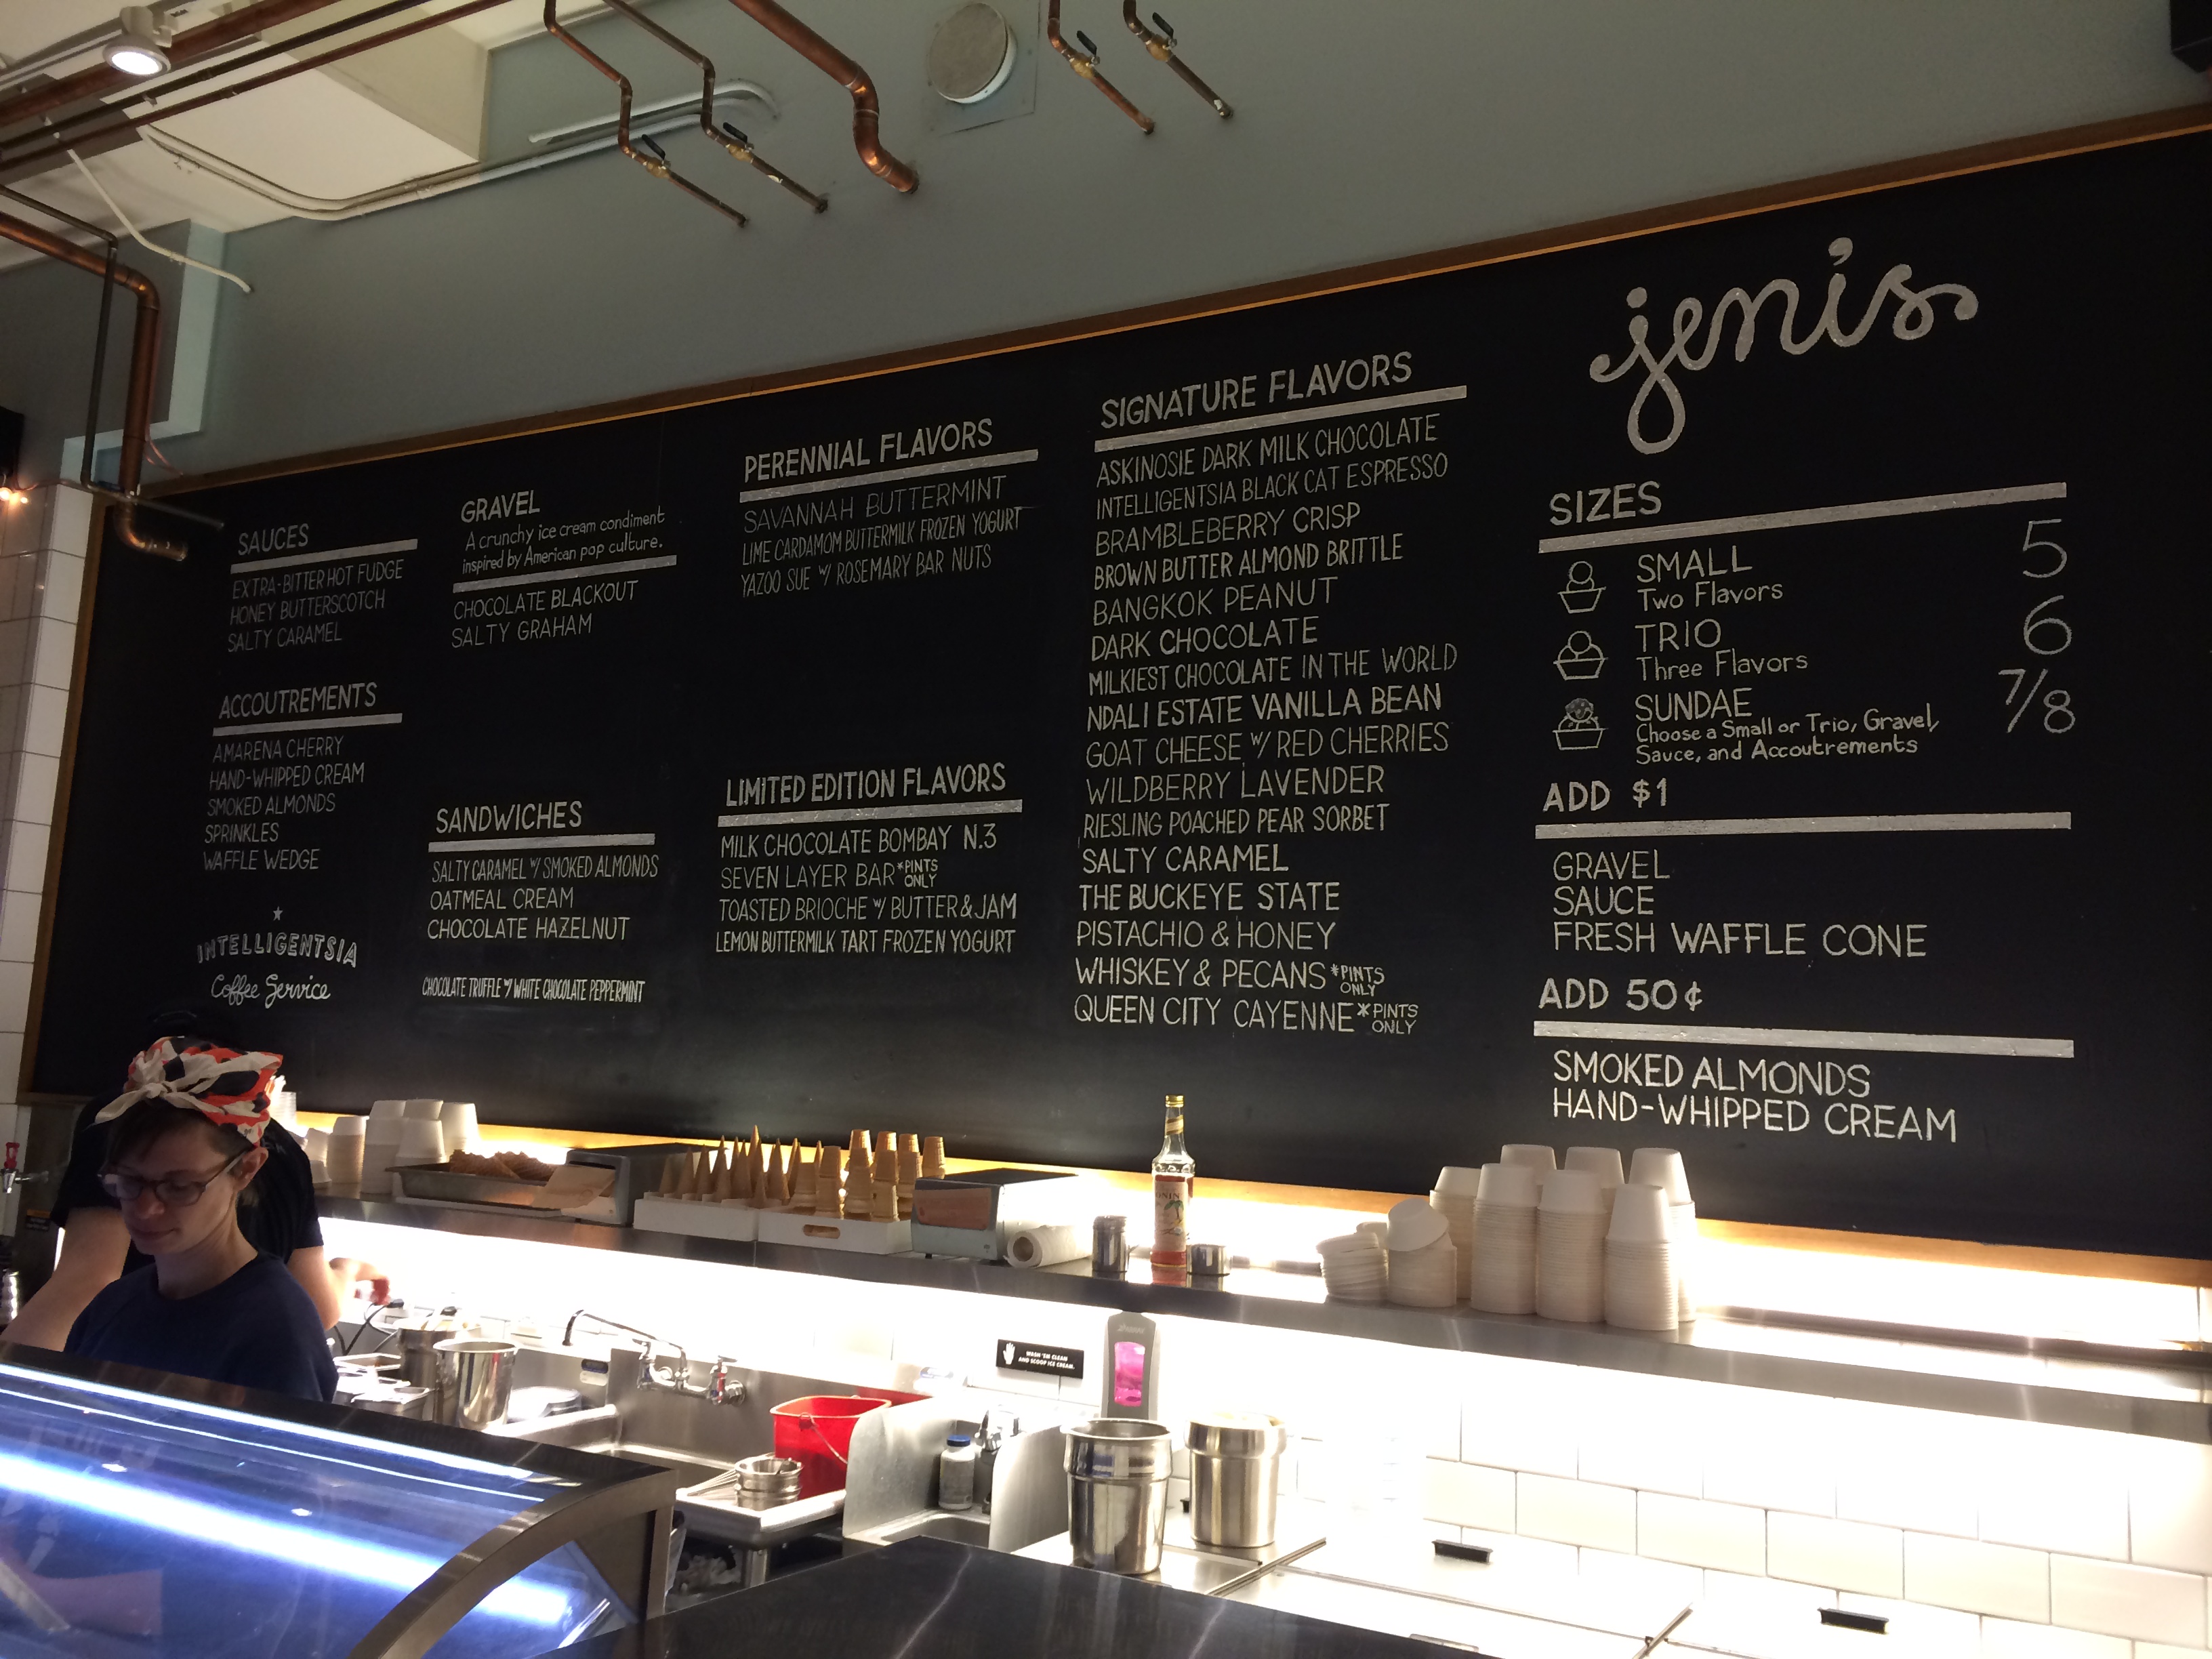 jenis
SAUCES
EXTRA-BITTER HOT FUDGE
HONEY BUTTERSCOTCH
SALTY CARAMEL
ACCOUTREMENTS
AMARENA CHERRY
HAND-WHIPPED CREAM
SMOKED ALMONDS
SPRINKLES
WAFFLE WEDGE
INTELLIGENTSIA
Coffee Service
GRAVEL
A crunchy ice cream condiment
inspired by American pop culture.
CHOCOLATE BLACKOUT
SALTY GRAHAM
SANDWICHES
SALTY CARAMEL W/ SMOKED ALMONDS
OATMEAL CREAM
CHOCOLATE HAZELNUT
CHOCOLATE TRUFFLE W/ WHITE CHOCOLATE PEPPERMINT
PERENNIAL FLAVORS
SAVANNAH BUTTERMINT
LIME CARDAMOM BUTTERMILK FROZEN YOGURT
YAZOO SUE W/ ROSEMARY BAR NUTS
LIMITED EDITION FLAVORS
MILK CHOCOLATE BOMBAY N.3
SEVEN LAYER BAR *PINTS ONLY
TOASTED BRIOCHE W/ BUTTER & JAM
LEMON BUTTERMILK TART FROZEN YOGURT
SIGNATURE FLAVORS
ASKINOSIE DARK MILK CHOCOLATE
INTELLIGENTSIA BLACK CAT ESPRESSO
BRAMBLEBERRY CRISP
BROWN BUTTER ALMOND BRITTLE
BANGKOK PEANUT
DARK CHOCOLATE
MILKIEST CHOCOLATE IN THE WORLD
NDALI ESTATE VANILLA BEAN
GOAT CHEESE W/ RED CHERRIES
WILDBERRY LAVENDER
RIESLING POACHED PEAR SORBET
SALTY CARAMEL
THE BUCKEYE STATE
PISTACHIO & HONEY
WHISKEY & PECANS *PINTS ONLY
QUEEN CITY CAYENNE *PINTS ONLY
SIZES
SMALL 5
Two Flavors
TRIO 6
Three Flavors
SUNDAE 7/8
Choose a Small or Trio, Gravel,
Sauce, and Accoutrements
ADD $1
GRAVEL
SAUCE
FRESH WAFFLE CONE
ADD 50¢
SMOKED ALMONDS
HAND-WHIPPED CREAM
WASH 'EM CLEAN
AND SCOOP ICE CREAM.